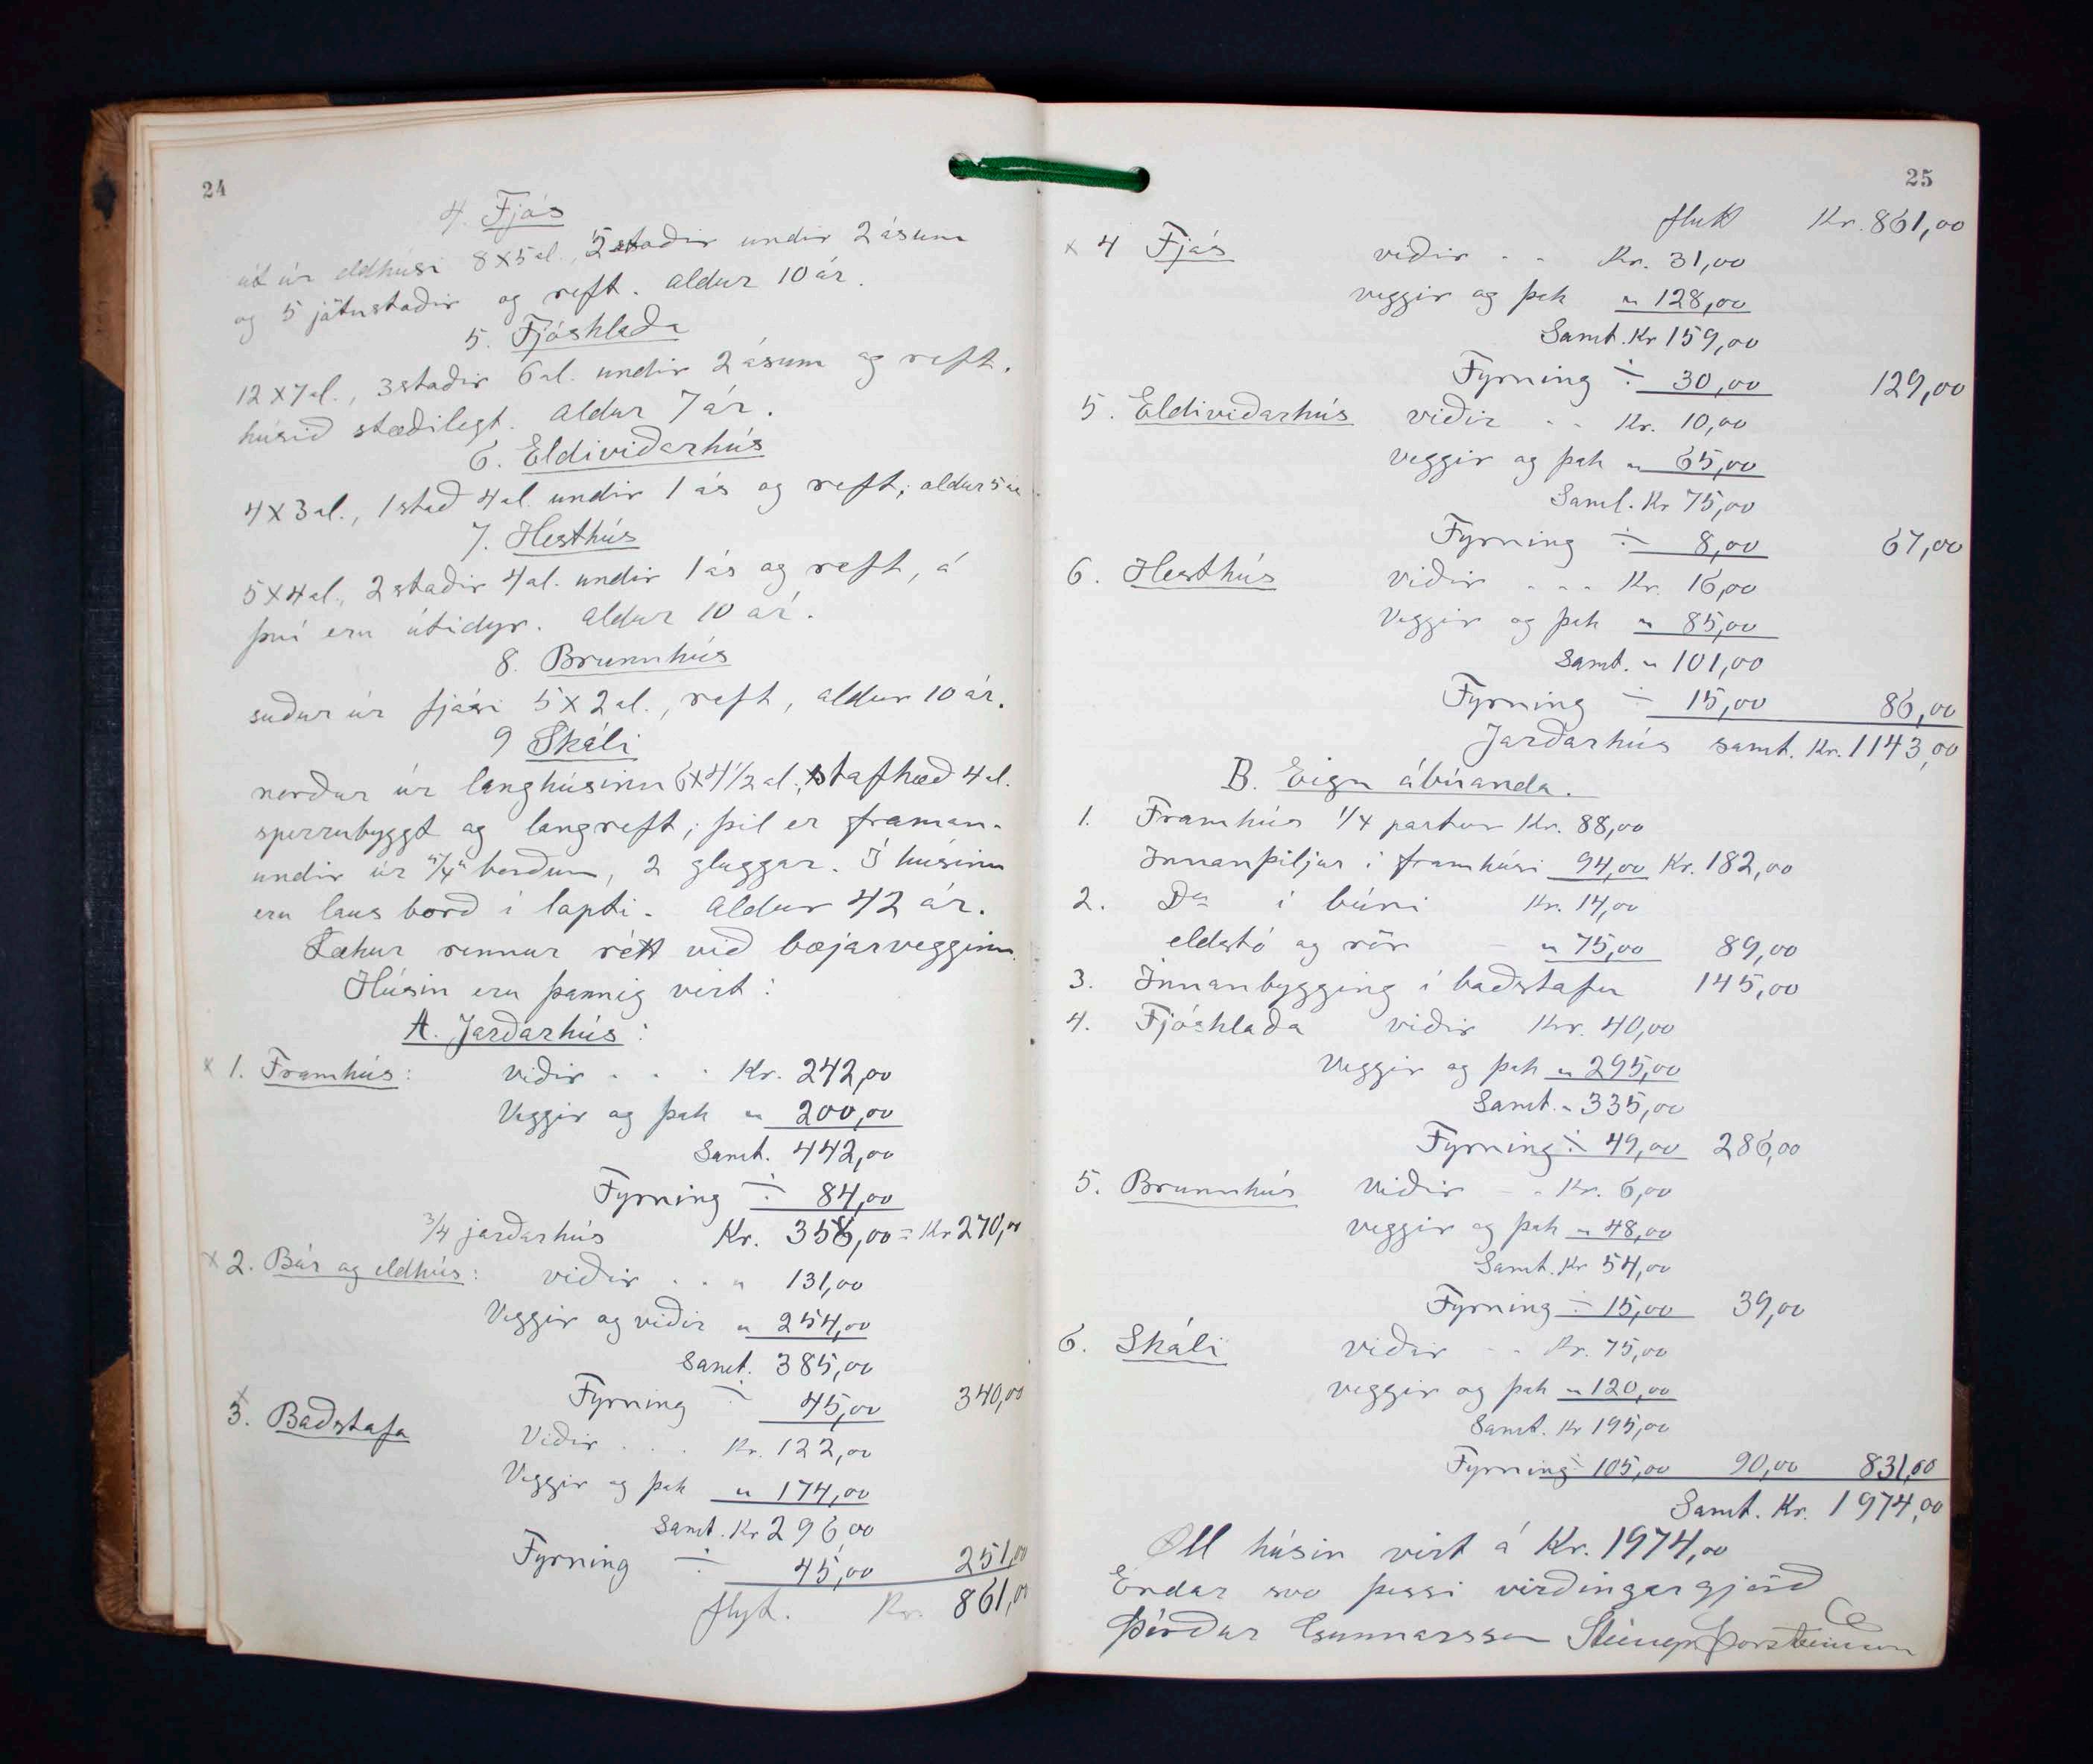 24
4. Fjós
út úr eldhúsi 8X5 al., 5 staðir undir 2 ásum
og 5 jötustaðir og reft. Aldur 10 ár.
5. Fjóshlaða
12X7 al., 3 staðir 6 al. undir 2 ásum og reft.
húsið stæðilegt. Aldur 7 ár.
6. Eldiviðarhús
4X3 al., 1 stað 4 al. undir 1 ás og reft; aldur 5 ár
7. Hesthús
5X4 al., 2 staðir 4 al. undir 1 ás og reft, á
því eru útidyr. Aldur 10 ár.
8. Brunnhús
suður úr fjósi 5X2 al., reft, aldur 10 ár.
9 Skáli
norður úr langhúsinu 6X4 1/2 al., stafhæð 4 al.
sperrubyggt og langreft; þil er framan-
undir úr 5/4" borðum, 2 gluggar. Í húsinu
eru laus borð í lopti. Aldur 42 ár.
Lækur rennur rétt við bæjarvegginn.
Húsin eru þannig virt:
A. Jarðarhús:
x 1. Framhús: viðir . . . Kr. 242,00
Veggir og þak " 200,00
Samt. 442,00
Fyrning ÷ 84,00
3/4 jarðarhús Kr. 358,00 = Kr 270,00
x 2. Búr og eldhús: viðir . . " 131,00
Veggir og viðir " 254,00
Samt. 385,00
Fyrning ÷ 45,00 340,00
x 3. Baðstofa Viðir . . . Kr. 122,00
Veggir og þak " 174,00
Samt. Kr 296,00
Fyrning ÷ 45,00 251,00
flyt. Kr. 861,00
25
flutt Kr. 861,00
x 4 Fjós viðir . . Kr. 31,00
veggir og þak " 128,00
Samt. Kr 159,00
Fyrning ÷ 30,00 129,00
5. Eldiviðarhús viðir . . Kr. 10,00
veggir og þak " 65,00
Saml. Kr 75,00
Fyrning ÷ 8,00 67,00
6. Hesthús viðir . . . Kr. 16,00
Veggir og þak " 85,00
Samt. " 101,00
Fyrning ÷ 15,00 86,00
Jarðarhús samt. Kr. 1143,00
B. Eign ábúanda.
1. Framhús 1/4 partur Kr. 88,00
Innanþiljur í framhúsi 94,00 Kr. 182,00
2. Do í búri Kr. 14,00
eldstó og rör " 75,00 89,00
3. Innanbygging í baðstofu 145,00
4. Fjóshlaða viðir Kr. 40,00
Veggir og þak " 295,00
Samt. " 335,00
Fyrning ÷ 49,00 286,00
5. Brunnhús Viðir . . Kr. 6,00
veggir og þak " 48,00
Samt. Kr 54,00
Fyrning ÷ 15,00 39,00
6. Skáli viðir . . Kr. 75,00
veggir og þak " 120,00
Samt. Kr 195,00
Fyrning ÷ 105,00 90,00 831,00
Samt. Kr. 1974,00
Öll húsin virt á Kr. 1974,00
Endar svo þessi virðingargjörð
Þórður Gunnarsson Steingr Þorsteinsson